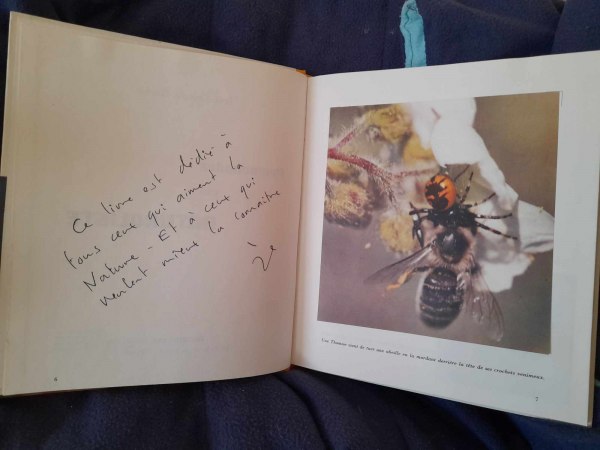 Ce livre est dédié à
tous ceux qui aiment la
Nature - Et à ceux qui
veulent mieux la connaître
6
Une Thomise vient de tuer une abeille en la mordant derrière la tête de ses crochets venimeux.
7